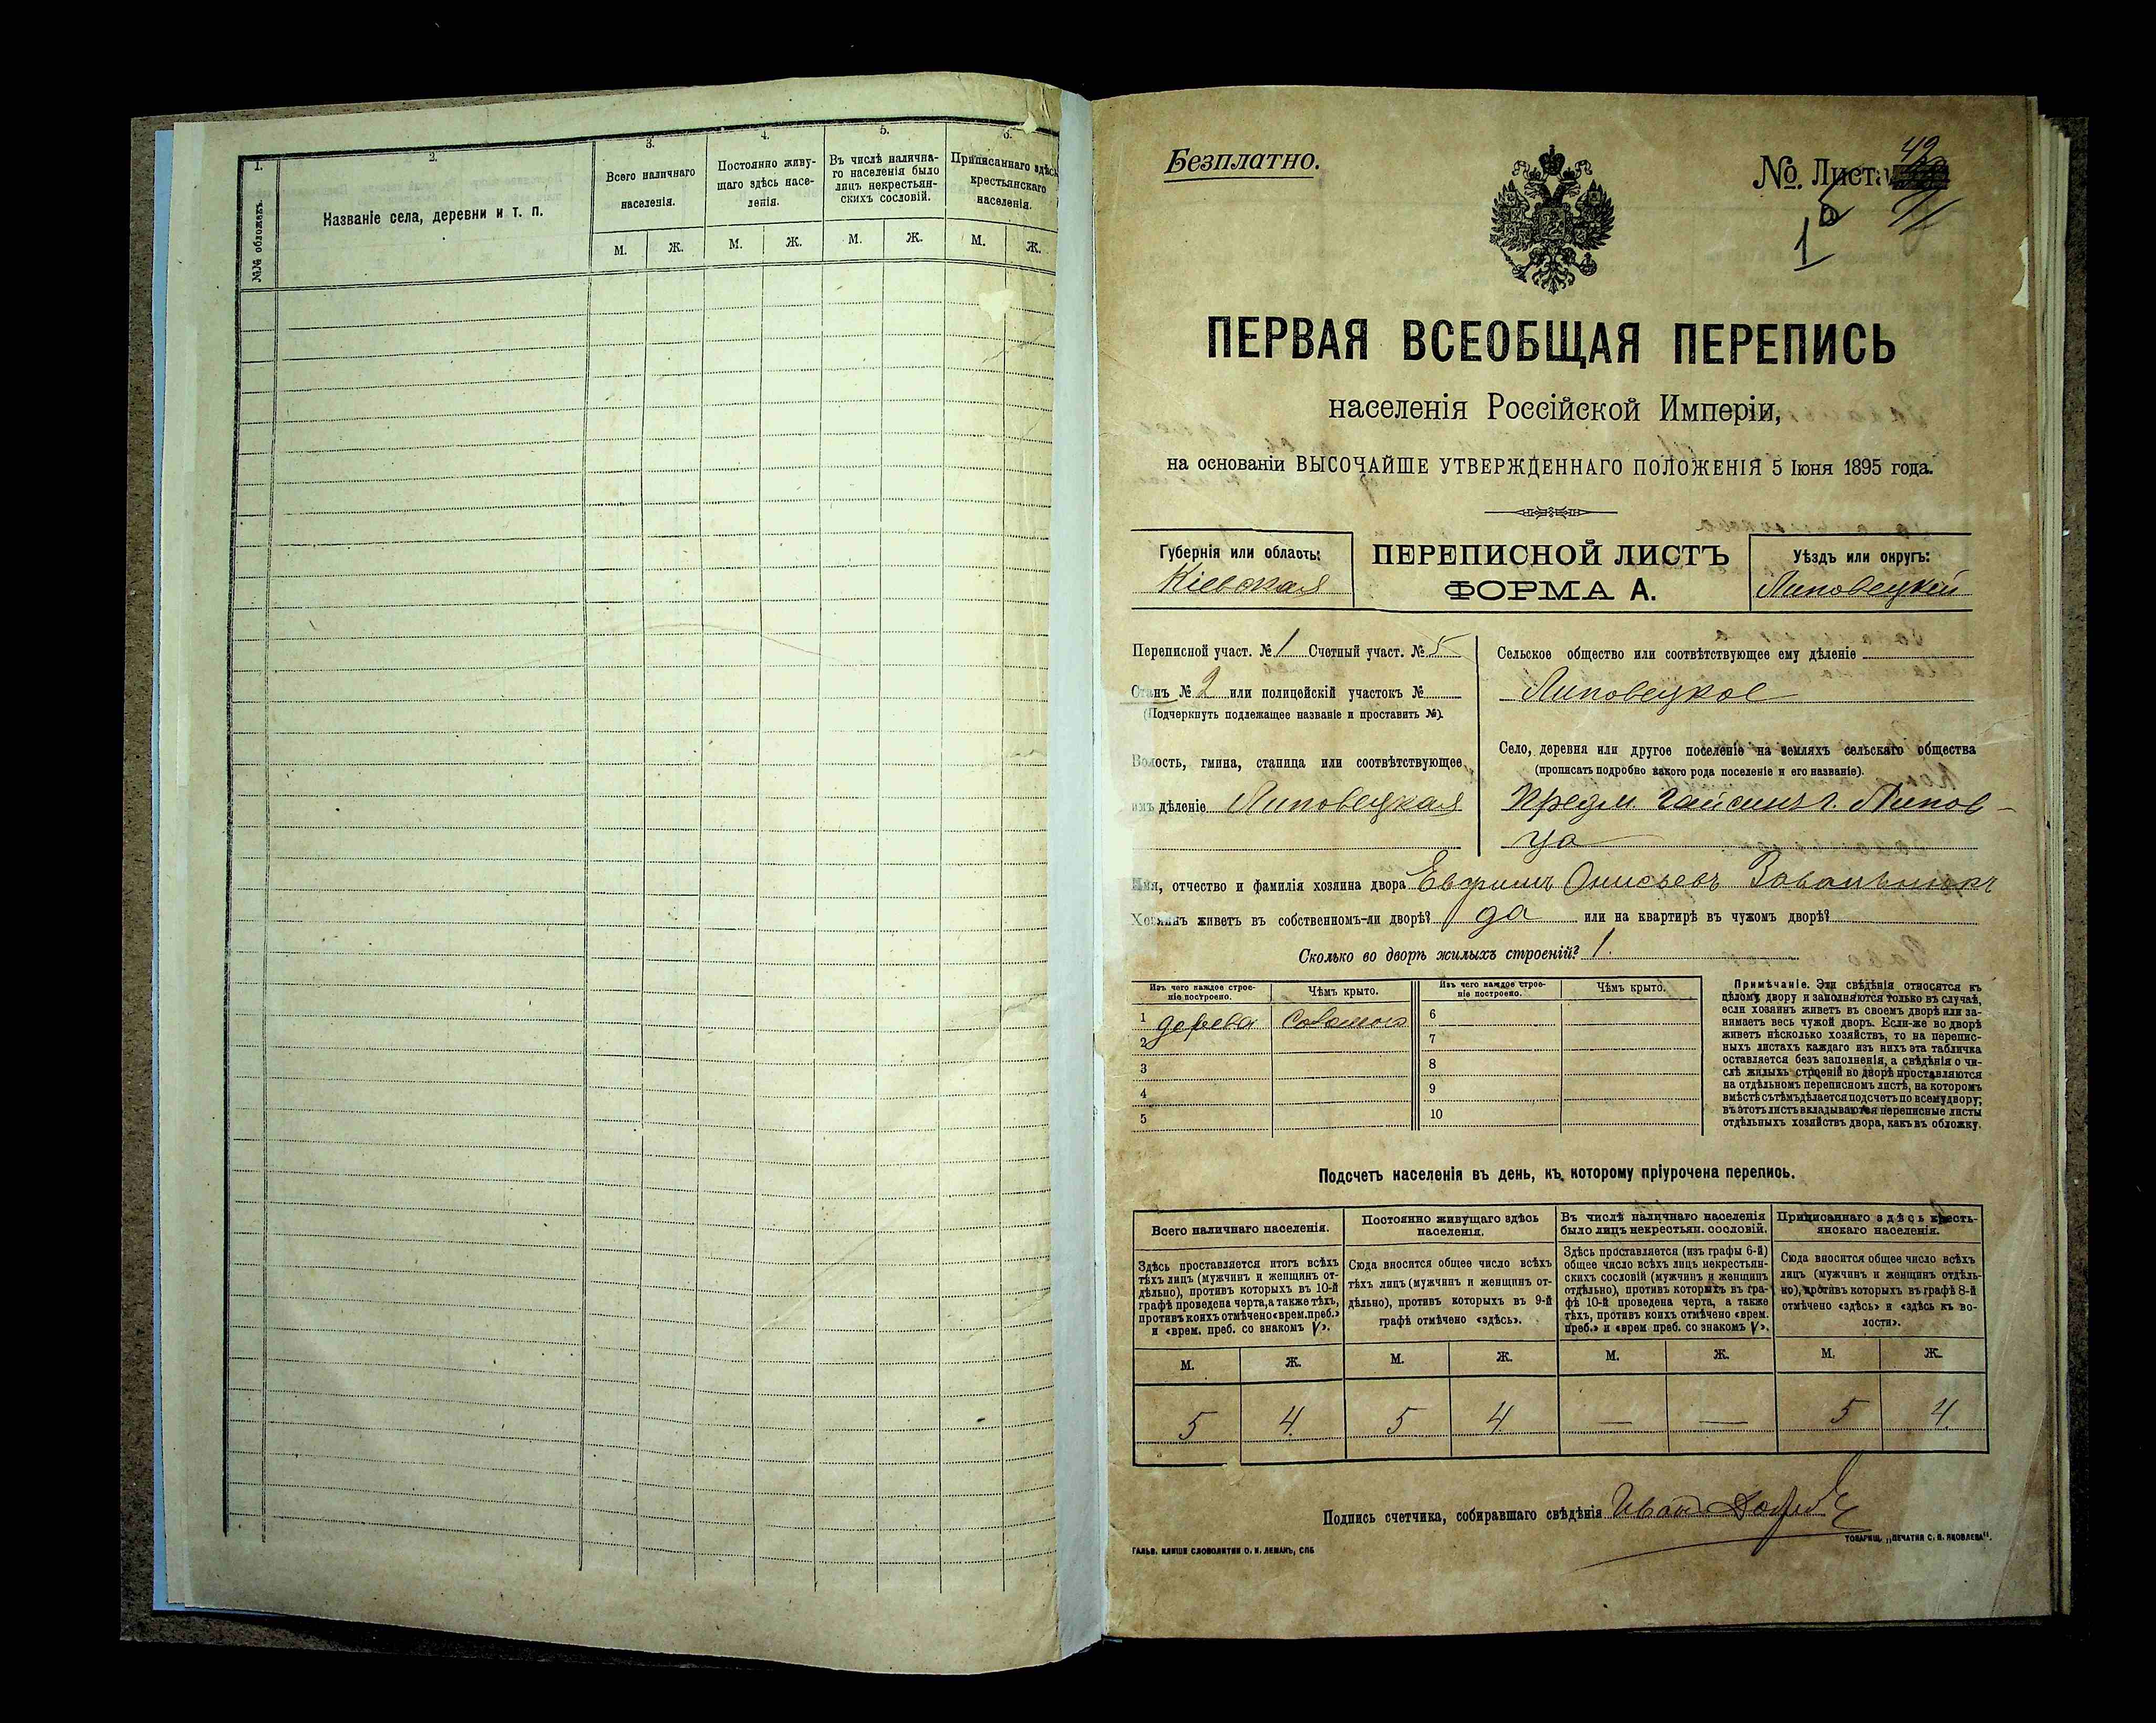 1.
2.
3.
4.
5.
6.
№№ обложекъ.
Названіе села, деревни и т. п.
Всего наличнаго
населенія.
Постоянно живу-
щаго здѣсь насе-
ленія.
Въ числѣ налична-
го населенія было
лицъ некрестьян-
скихъ сословій.
Приписаннаго здѣсь
крестьянскаго
населенія.
М. Ж. М. Ж. М. Ж. М. Ж.
Безплатно.
№. Листа
43
5
1
ПЕРВАЯ ВСЕОБЩАЯ ПЕРЕПИСЬ
населенія Россійской Имперіи,
на основаніи ВЫСОЧАЙШЕ УТВЕРЖДЕННАГО ПОЛОЖЕНІЯ 5 Іюня 1895 года.
Губернія или область:
Кіевская
ПЕРЕПИСНОЙ ЛИСТЪ
ФОРМА А.
Уѣздъ или округъ:
Липовецкій
Переписной участ. № 1 Счетный участ. № 5
Станъ № 2 или полицейскій участокъ №
(Подчеркнуть подлежащее названіе и проставить №).
Волость, гмина, станица или соотвѣтствующее
имъ дѣленіе Липовецкая
Сельское общество или соотвѣтствующее ему дѣленіе
Липовецкое
Село, деревня или другое поселеніе на земляхъ сельскаго общества
(прописать подробно какого рода поселеніе и его названіе).
Предм Гайсинъ г. Липов-
ца
Имя, отчество и фамилія хозяина двора Евфимъ Онисьевъ
Хозяинъ живетъ въ собственномъ-ли дворѣ? да или на квартирѣ въ чужомъ дворѣ?
Сколько во дворѣ жилыхъ строеній? 1.
Изъ чего каждое строе-
ніе построено.
Чѣмъ крыто.
Изъ чего каждое строе-
ніе построено.
Чѣмъ крыто.
1 дерева Соломою
2
3
4
5
6
7
8
9
10
Примѣчаніе. Эти свѣдѣнія относятся къ
цѣлому двору и заполняются только въ случаѣ,
если хозяинъ живетъ въ своемъ дворѣ или за-
нимаетъ весь чужой дворъ. Если-же во дворѣ
живетъ нѣсколько хозяйствъ, то на перепис-
ныхъ листахъ каждаго изъ нихъ эта табличка
оставляется безъ заполненія, а свѣдѣнія о чи-
слѣ жилыхъ строеній во дворѣ проставляются
на отдѣльномъ переписномъ листѣ, на которомъ
вмѣстѣ съ тѣмъ дѣлается подсчетъ по всему двору;
въ этотъ листъ вкладываются переписные листы
отдѣльныхъ хозяйствъ двора, какъ въ обложку.
Подсчетъ населенія въ день, къ которому пріурочена перепись.
Всего наличнаго населенія.
Постоянно живущаго здѣсь
населенія.
Въ числѣ наличнаго населенія
было лицъ некрестьян. сословій.
Приписаннаго здѣсь кресть-
янскаго населенія.
Здѣсь проставляется итогъ всѣхъ
тѣхъ лицъ (мужчинъ и женщинъ от-
дѣльно), противъ которыхъ въ 10-й
графѣ проведена черта, а также тѣхъ,
противъ коихъ отмѣчено «врем. преб.»
и «врем. преб. со знакомъ V».
Сюда вносится общее число всѣхъ
тѣхъ лицъ (мужчинъ и женщинъ от-
дѣльно), противъ которыхъ въ 9-й
графѣ отмѣчено «здѣсь».
Здѣсь проставляется (изъ графы 6-й)
общее число всѣхъ лицъ некрестьян-
скихъ сословій (мужчинъ и женщинъ
отдѣльно), противъ которыхъ въ гра-
фѣ 10-й проведена черта, а также
тѣхъ, противъ коихъ отмѣчено «врем.
преб.» и «врем преб. со знакомъ V».
Сюда вносится общее число всѣхъ
лицъ (мужчинъ и женщинъ отдѣль-
но), противъ которыхъ въ графѣ 8-й
отмѣчено «здѣсь» и «здѣсь къ во-
лости».
М. Ж. М. Ж. М. Ж. М. Ж.
5 4. 5 4. — — 5 4.
Подпись счетчика, собиравшаго свѣдѣнія Иванъ
ГАЛЬВ. КЛИШЕ СЛОВОЛИТНИ О. И. ЛЕМАНЪ, СПБ
ТОВАРИЩ. „ПЕЧАТНЯ С. П. ЯКОВЛЕВА".